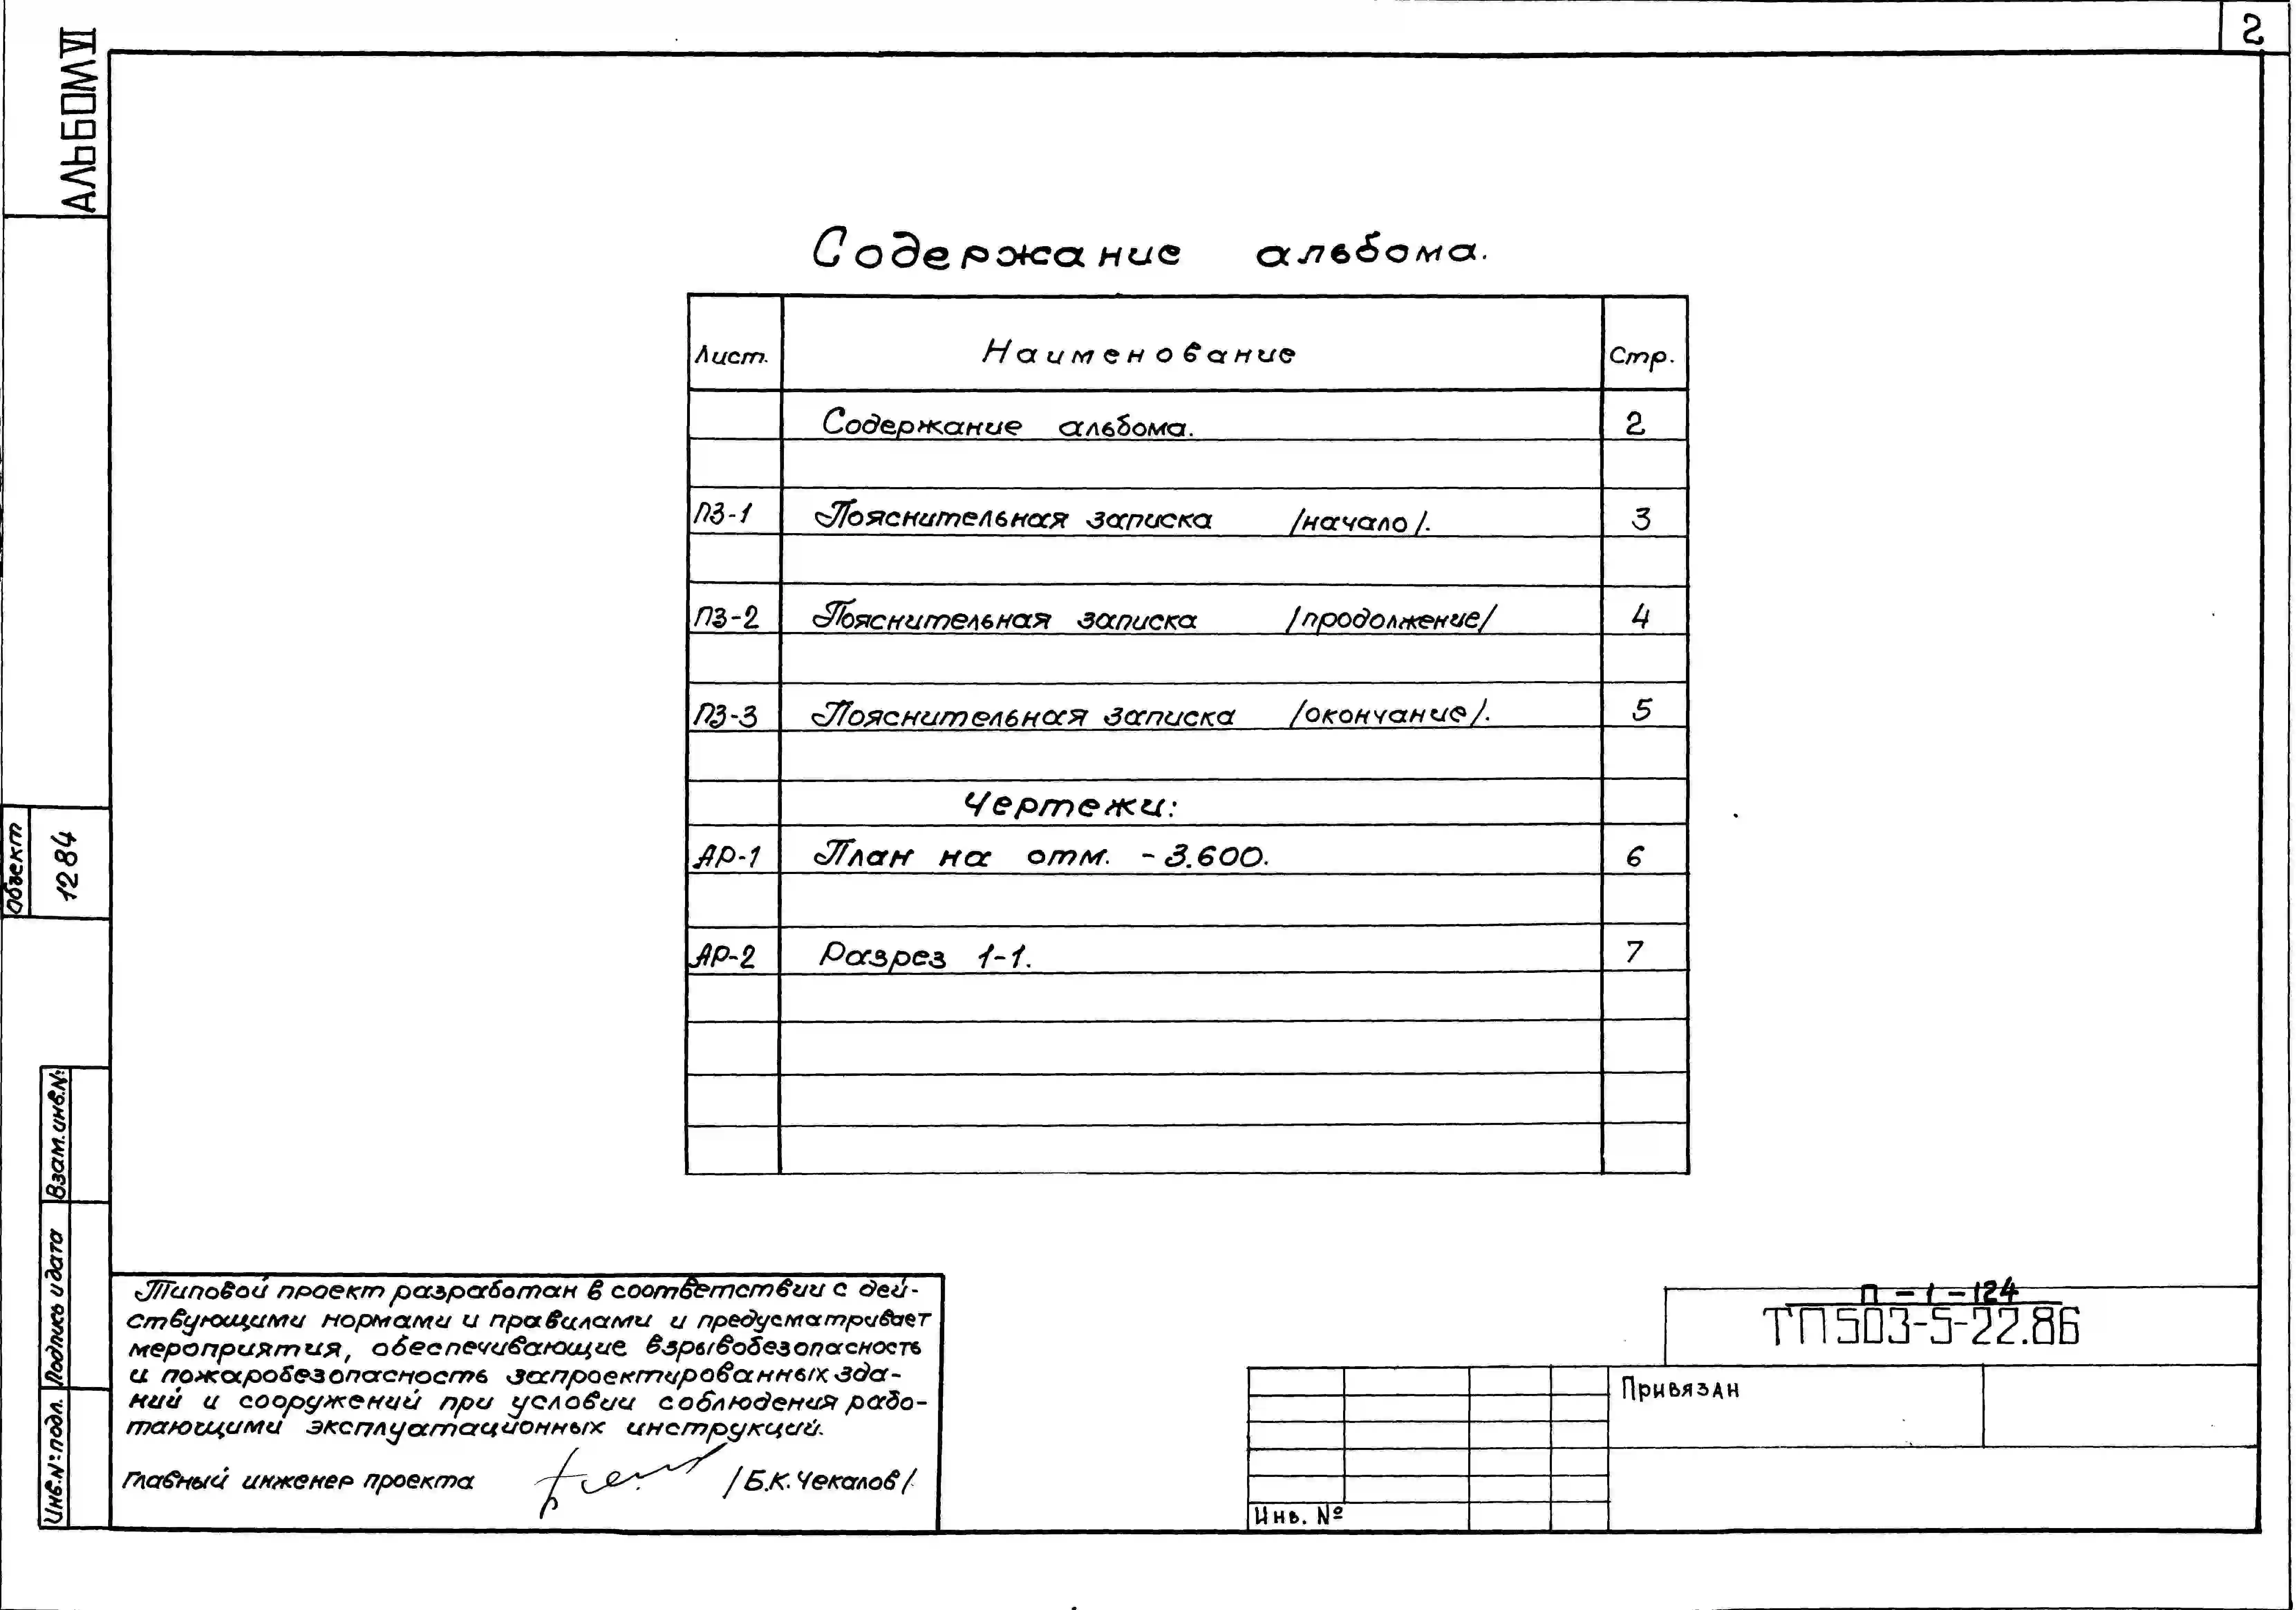 2
АЛЬБОМ VI
Содержание альбома.
Лист. Наименование Стр.
Содержание альбома. 2
ПЗ-1 Пояснительная записка /начало/. 3
ПЗ-2 Пояснительная записка /продолжение/ 4
ПЗ-3 Пояснительная записка /окончание/. 5
Чертежи:
АР-1 План на отм. -3.600. 6
АР-2 Разрез 1-1. 7
Объект 1284
Взам.инв.№
Подпись и дата
Инв.№ подл.
Типовой проект разработан в соответствии с дей-
ствующими нормами и правилами и предусматривает
мероприятия, обеспечивающие взрывобезопасность
и пожаробезопасность запроектированных зда-
ний и сооружений при условии соблюдения рабо-
тающими эксплуатационных инструкций.
Главный инженер проекта /Б.К.Чекалов/.
П-1-124
ТП 503-5-22.86
Привязан
Инв. №